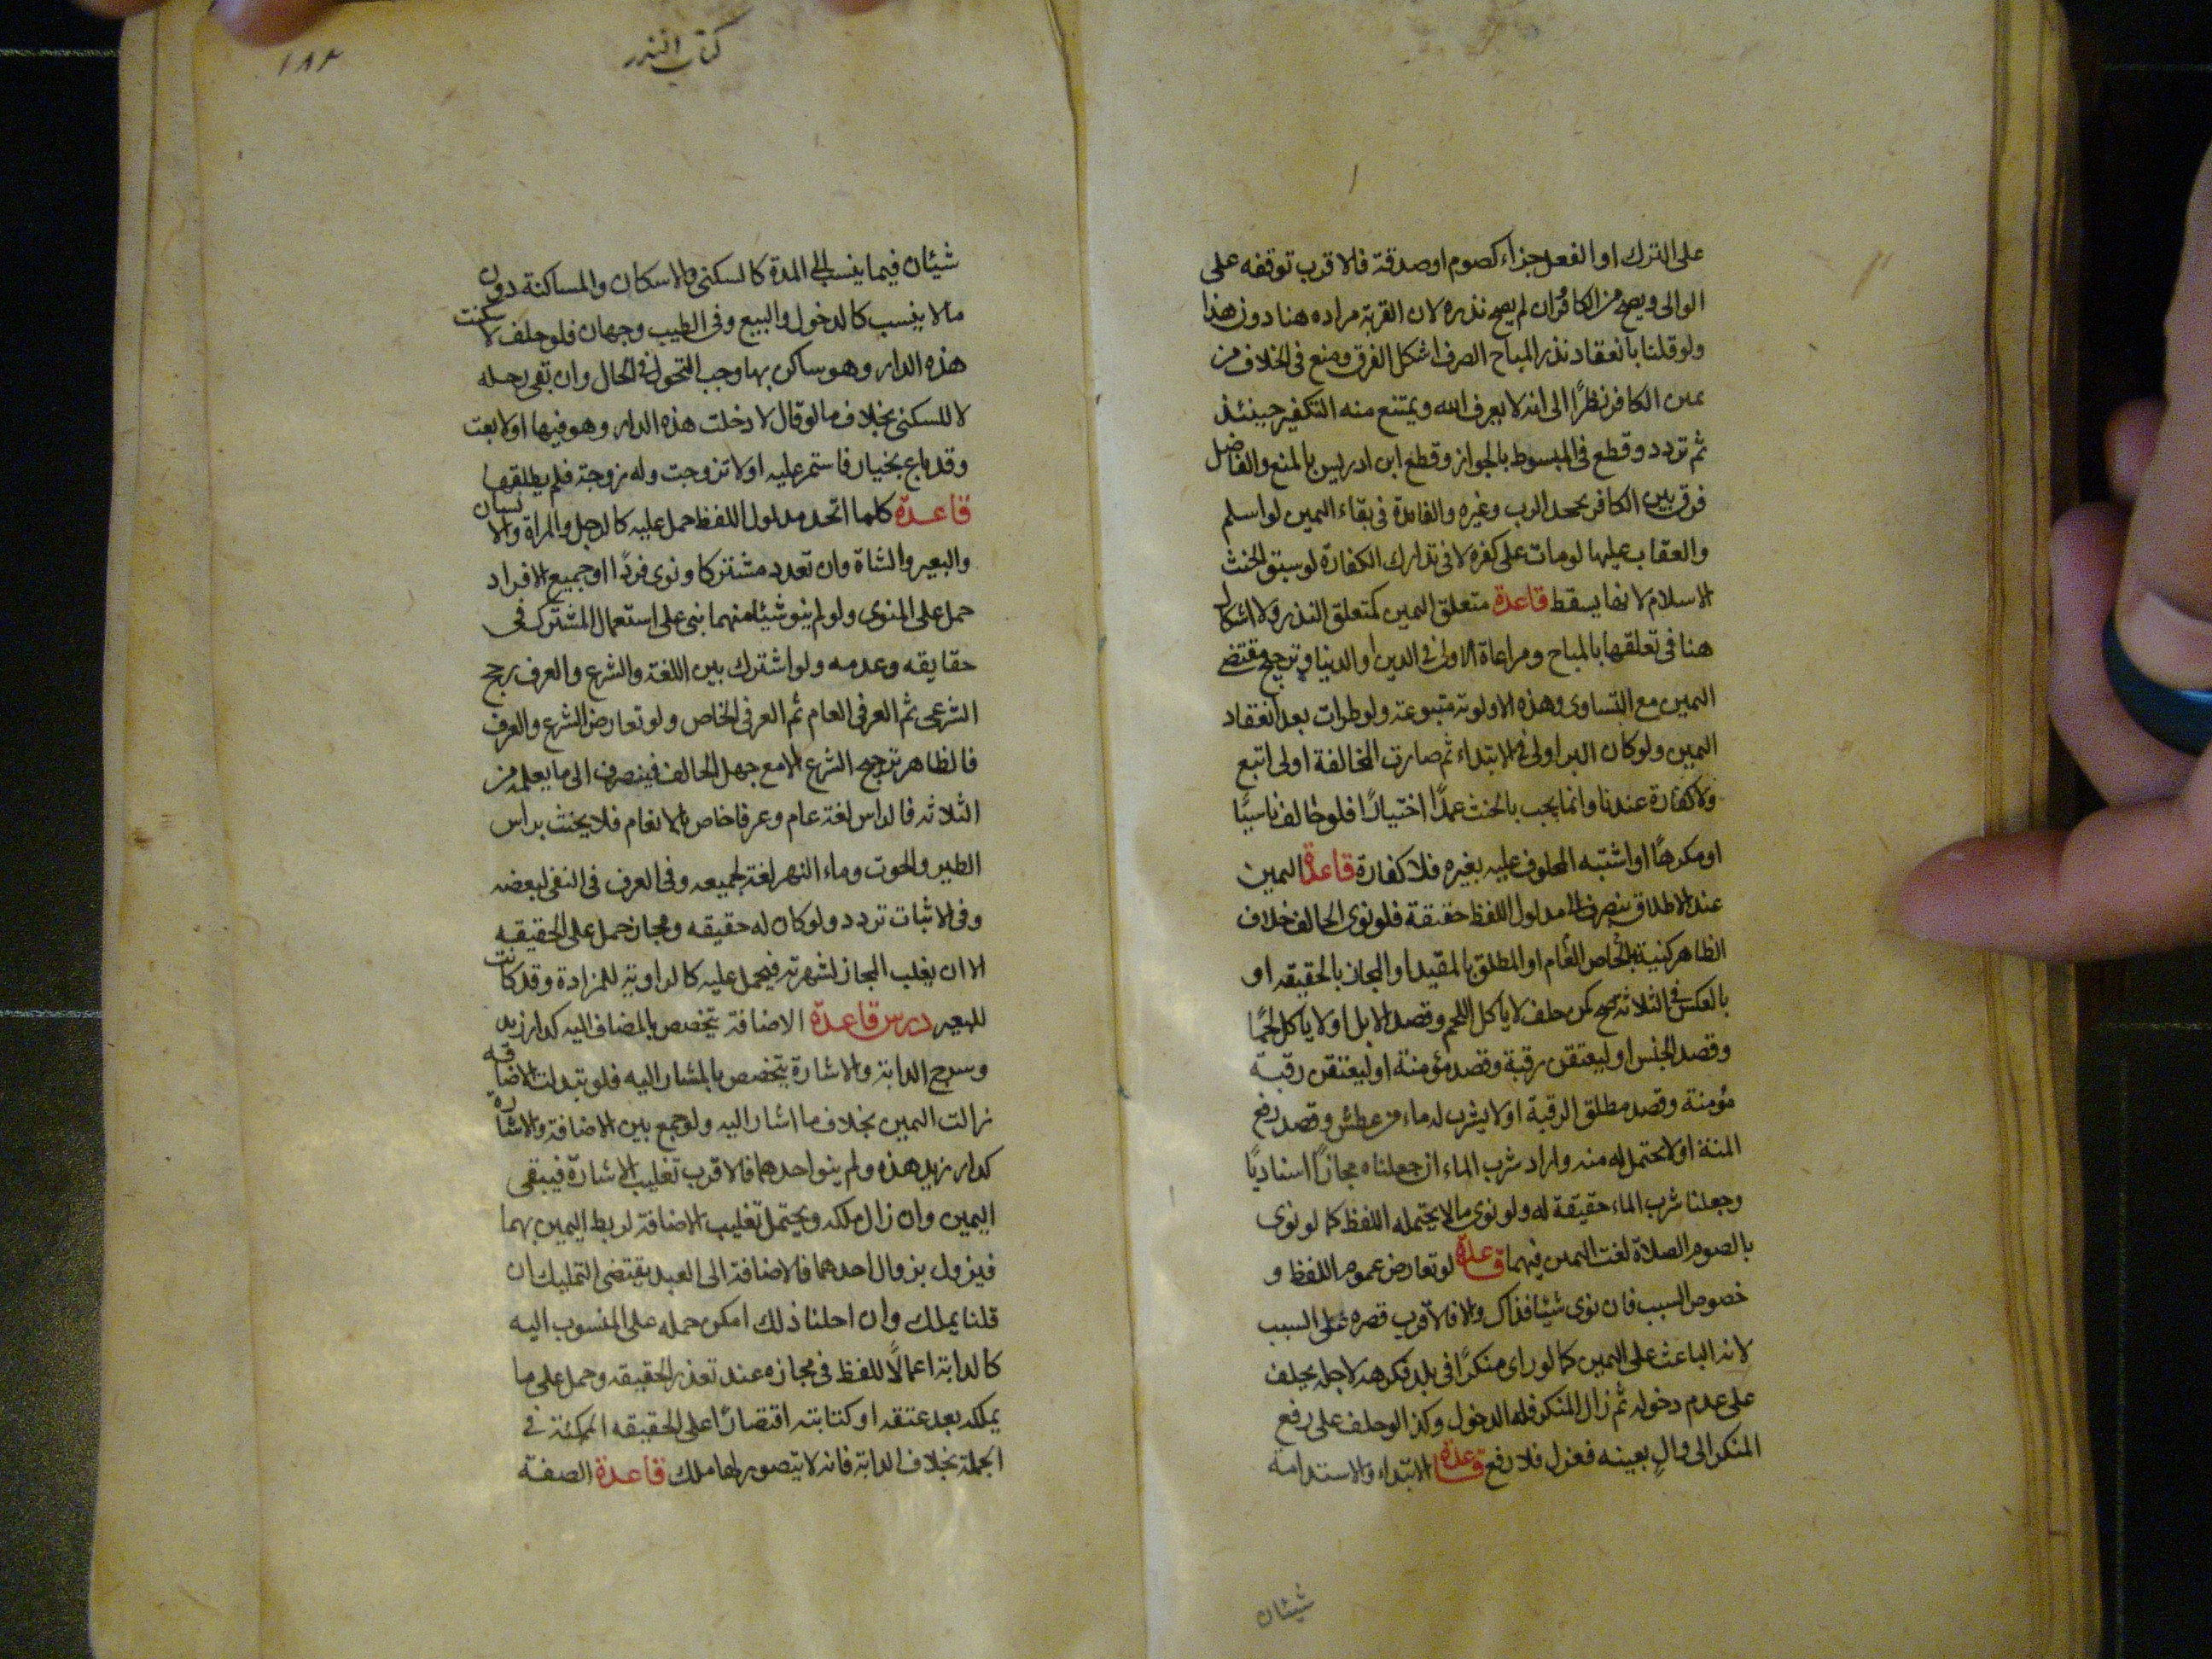 على الترك او الفعل جزاء كصوم او صدقة فالاقرب توقفه على
الوالى ويصح من الكافر وان لم يصح نذره لان القربة مراده هنا دون هذا
ولو قلنا بانعقاد نذر المباح الصرف اشكل الفرق ومنع فى الخلاف من
يمين الكافر نظرًا الى انه لا يعرف الله ويمتنع منه التكفير حينئذ
ثم تردد وقطع فى المبسوط بالجواز وقطع ابن ادريس بالمنع والفاضل
فرق بين الكافر بجحد الرب وغيره والفائدة فى بقاء اليمين لو اسلم
والعقاب عليها لو مات على كفره لا فى تدارك الكفارة لو سبق الحنث
الاسلام لانها يسقط قاعدة متعلق اليمين كمتعلق النذر ولا اشكال
هنا فى تعلقها بالمباح ومراعاة الاولى فى الدين او الدنيا وترجيح مقتضى
اليمين مع التساوى وهذه الاولوية متبوعة ولو طرات بعد انعقاد
اليمين ولو كان البر اولى فى الابتداء ثم صارت المخالفة اولى اتبع
ولا كفارة عندنا وانما يجب بالحنث عمدًا اختيارًا فلو خالف ناسيًا
او مكرهًا او اشتبه المحلوف عليه بغيره فلا كفارة قاعدة اليمين
عند الاطلاق ينصرف الى مدلول اللفظ حقيقة فلو نوى الحالف خلاف
الظاهر كنية الخاص بالعام او المطلق بالمقيد او المجاز بالحقيقه او
بالعكس فى الثلاثة صح كمن حلف لا ياكل اللحم وقصد الابل او لا ياكل لحمًا
وقصد الجنس او ليعتقن رقبة وقصد مؤمنة او ليعتقن رقبة
مؤمنة وقصد مطلق الرقبة او لا يشرب له ماء من عطش وقصد رفع
المنة او لا يحتمل له منه واراد شرب الماء ان جعلناه مجازًا اسناديًا
وجعلنا شرب الماء حقيقة له ولو نوى ما لا يحتمله اللفظ كما لو نوى
بالصوم الصلاة لغت اليمين فيهما قاعدة لو تعارض عموم اللفظ و
خصوص السبب فان نوى شيئا فذاك والا فالاقرب قصره على السبب
لانه الباعث على اليمين كما لو راى منكرًا فى بلد فكرهه لاجله يحلف
على عدم دخوله ثم زال المنكر فله الدخول وكذا لو حلف على رفع
المنكر الى والٍ بعينه فعزل فلا رفع قاعدة الابتداء والاستدامة
شيئان
كتاب النذر
١٨٢
شيئان فيما ينسب الى المدة كالسكنى والاسكان والمساكنة دون
ما لا ينسب كالدخول والبيع وفى الطيب وجهان فلو حلف لا سكنت
هذه الدار وهو ساكن بها وجب التحول فى الحال وان بقى رحله
لا للسكنى بخلاف ما لو قال لا دخلت هذه الدار وهو فيها او لا بعت
وقد باع بخيار فاستمر عليه او لا تزوجت وله زوجة فلم يطلقها
قاعدة كلما اتحد مدلول اللفظ حمل عليه كالرجل والمراة والانسان
والبعير والشاة وان تعدد مشتركا ونوى فردًا او جميع الافراد
حمل على المنوى ولو لم ينو شيئا منهما بنى على استعمال المشترك فى
حقايقه وعدمه ولو اشترك بين اللغة والشرع والعرف رجح
الشرعى ثم العرفى العام ثم العرفى الخاص ولو تعارض الشرع والعرف
فالظاهر ترجيح الشرع الا مع جهل الحالف فينصرف الى ما يعلمه من
الثلاثه فالراس لغة عام وعرفا خاص بالانعام فلا يحنث براس
الطير والحوت وماء النهر لغة لجميعه وفى العرف فى النفى لبعضه
وفى الاثبات تردد ولو كان له حقيقه ومجاز حمل على الحقيقه
الا ان يغلب المجاز لشهرته فيحمل عليه كالراوية للمزادة وقد كانت
للبعير درس قاعدة الاضافة يتخصص بالمضاف اليه كدار زيد
وسرج الدابة والاشارة يتخصص بالمشار اليه فلو تبدلت الاضافه
زالت اليمين بخلاف ما اشار اليه ولو جمع بين الاضافة والاشارة
كدار زيد هذه ولم ينو احدهما فالاقرب تغليب الاشارة فيبقى
اليمين وان زال ملكه ويحتمل تغليب الاضافة لربط اليمين بهما
فيزول بزوال احدهما فالاضافة الى العبد يقتضى التمليك ان
قلنا يملك وان احلنا ذلك امكن حمله على المنسوب اليه
كالدابة اعمالًا للفظ فى مجازه عند تعذر الحقيقه وحمل على ما
يملكه بعد عتقه او كتابته اقتصارًا على الحقيقه الممكنة فى
الجملة بخلاف الدابة فانه لا يتصور لها ملك قاعدة الصفة